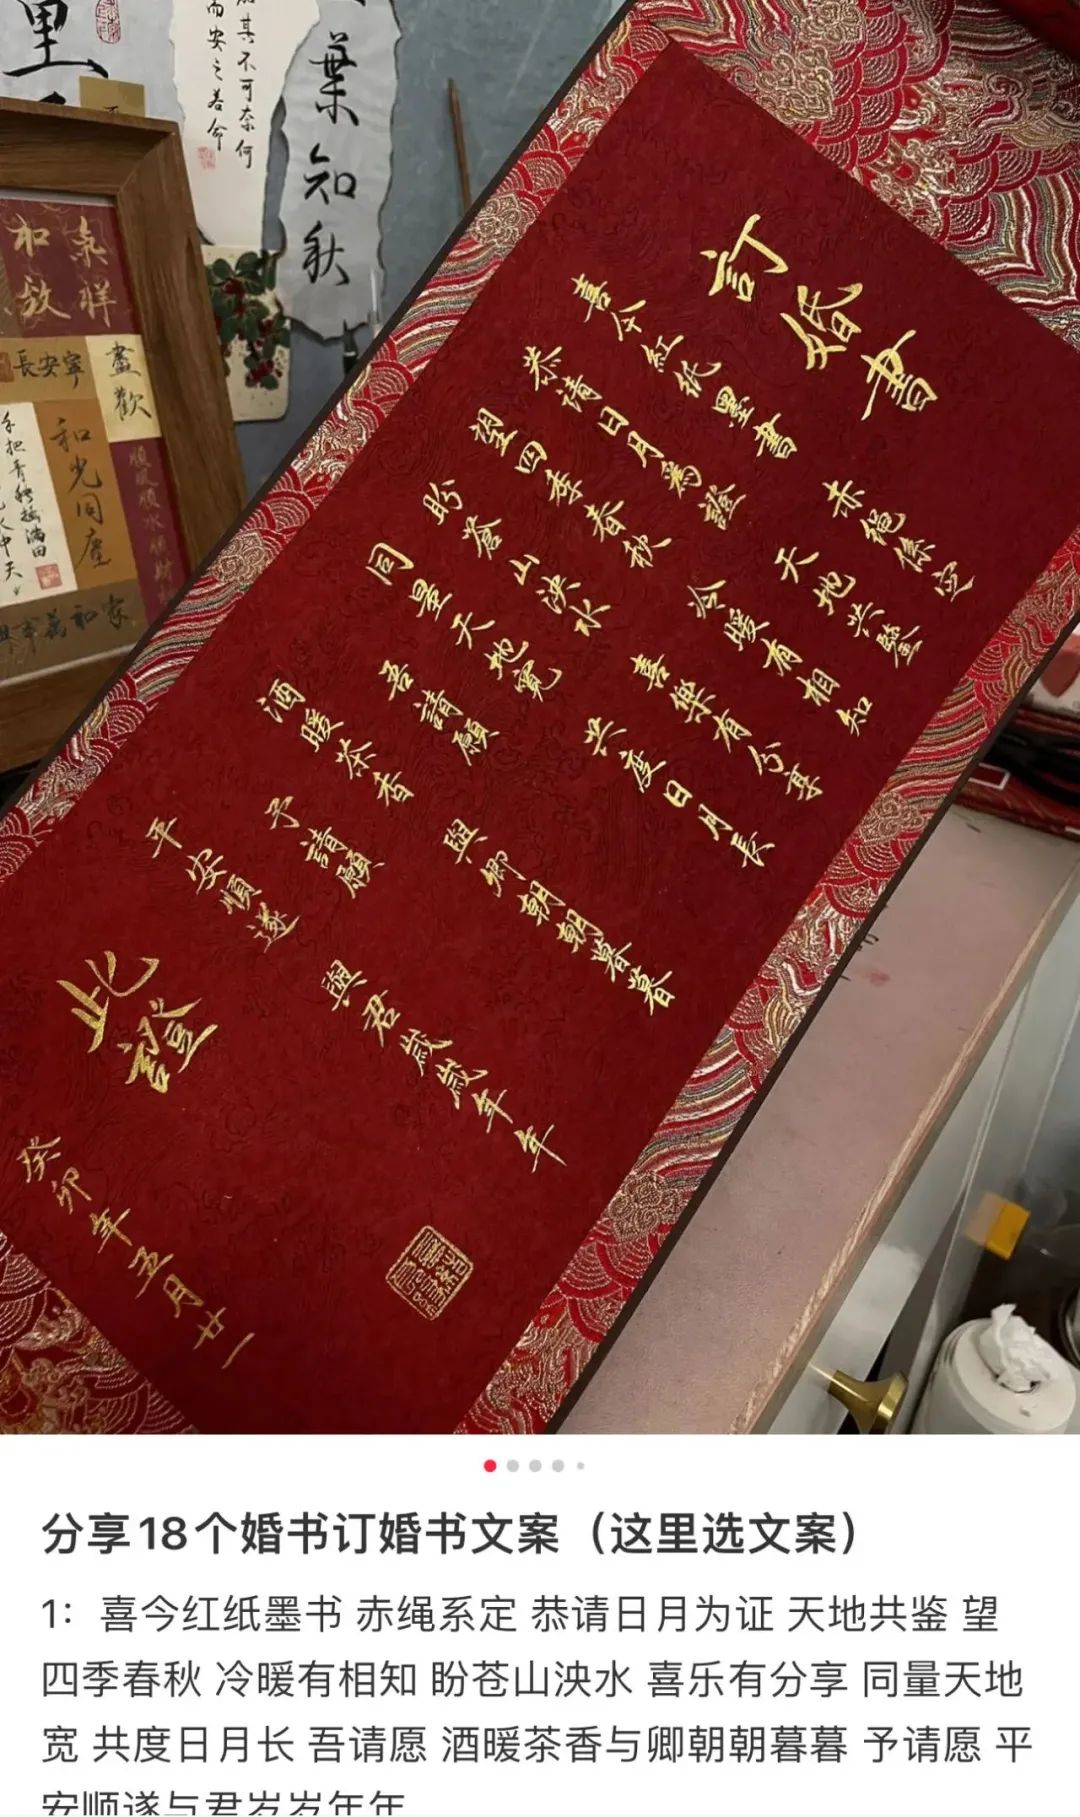 里
其不可奈何
而安之若命
葉知秋
和 氣
致 祥
長安寧
盡歡
和光同塵
手把青秧插满田
訂婚書
喜今紅紙墨書 赤繩係定
恭请日月為證 天地共鑒
望四季春秋 冷暖有相知
盼苍山泱水 喜樂有分享
同量天地寬 共度日月長
吾請願
酒暖茶香 與卿朝朝暮暮
予請願
平安順遂 與君歲歲年年
此證
癸卯年五月廿一
分享18个婚书订婚书文案（这里选文案）
1：喜今红纸墨书 赤绳系定 恭请日月为证 天地共鉴 望
四季春秋 冷暖有相知 盼苍山泱水 喜乐有分享 同量天地
宽 共度日月长 吾请愿 酒暖茶香与卿朝朝暮暮 予请愿 平
安顺遂与君岁岁年年